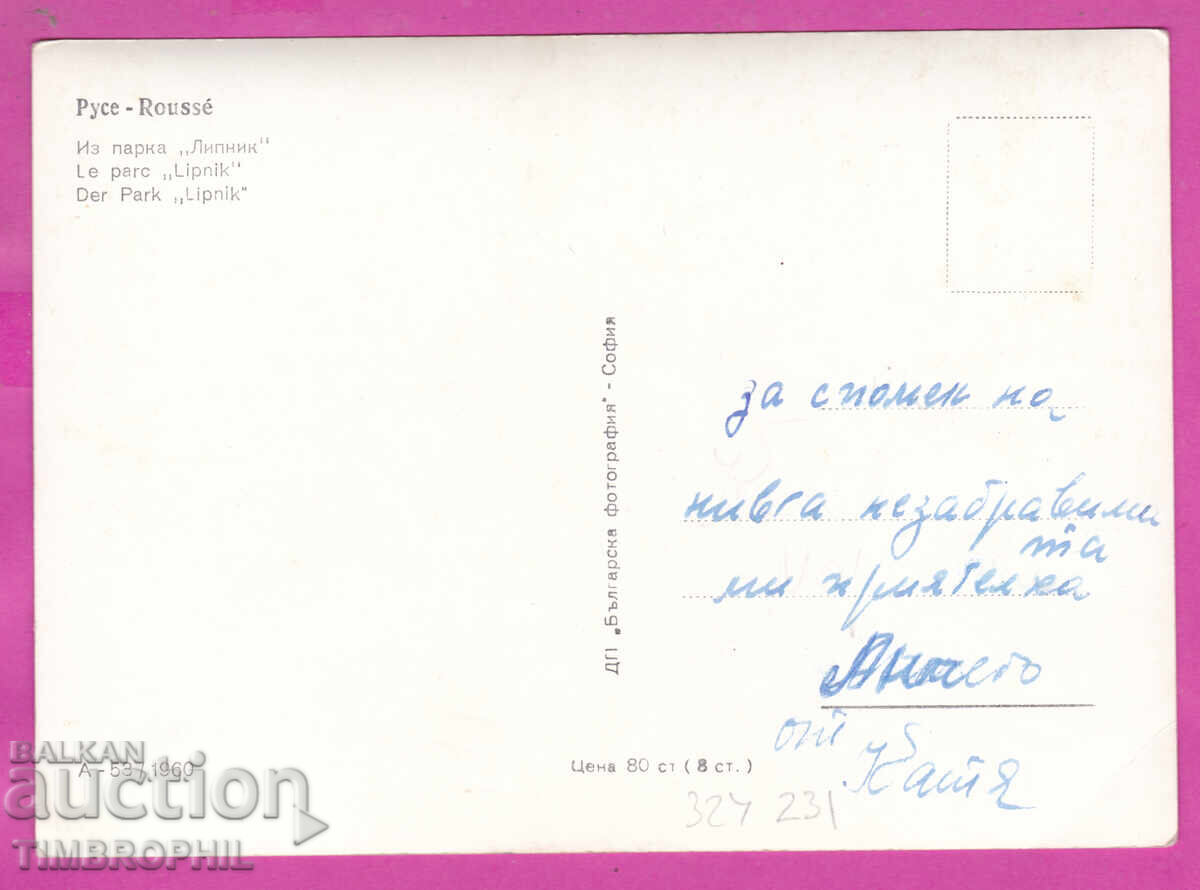 Русе - Roussé
Из парка „Липник"
Le parc „Lipnik"
Der Park „Lipnik"
ДП „Българска фотография" - София
за спомен на
нивга незабравими
та
ми приятелка
от
Катя
А - 537, 1960
Цена 80 ст (8 ст.)
324 231
BALKAN
auction
TIMBROPHIL